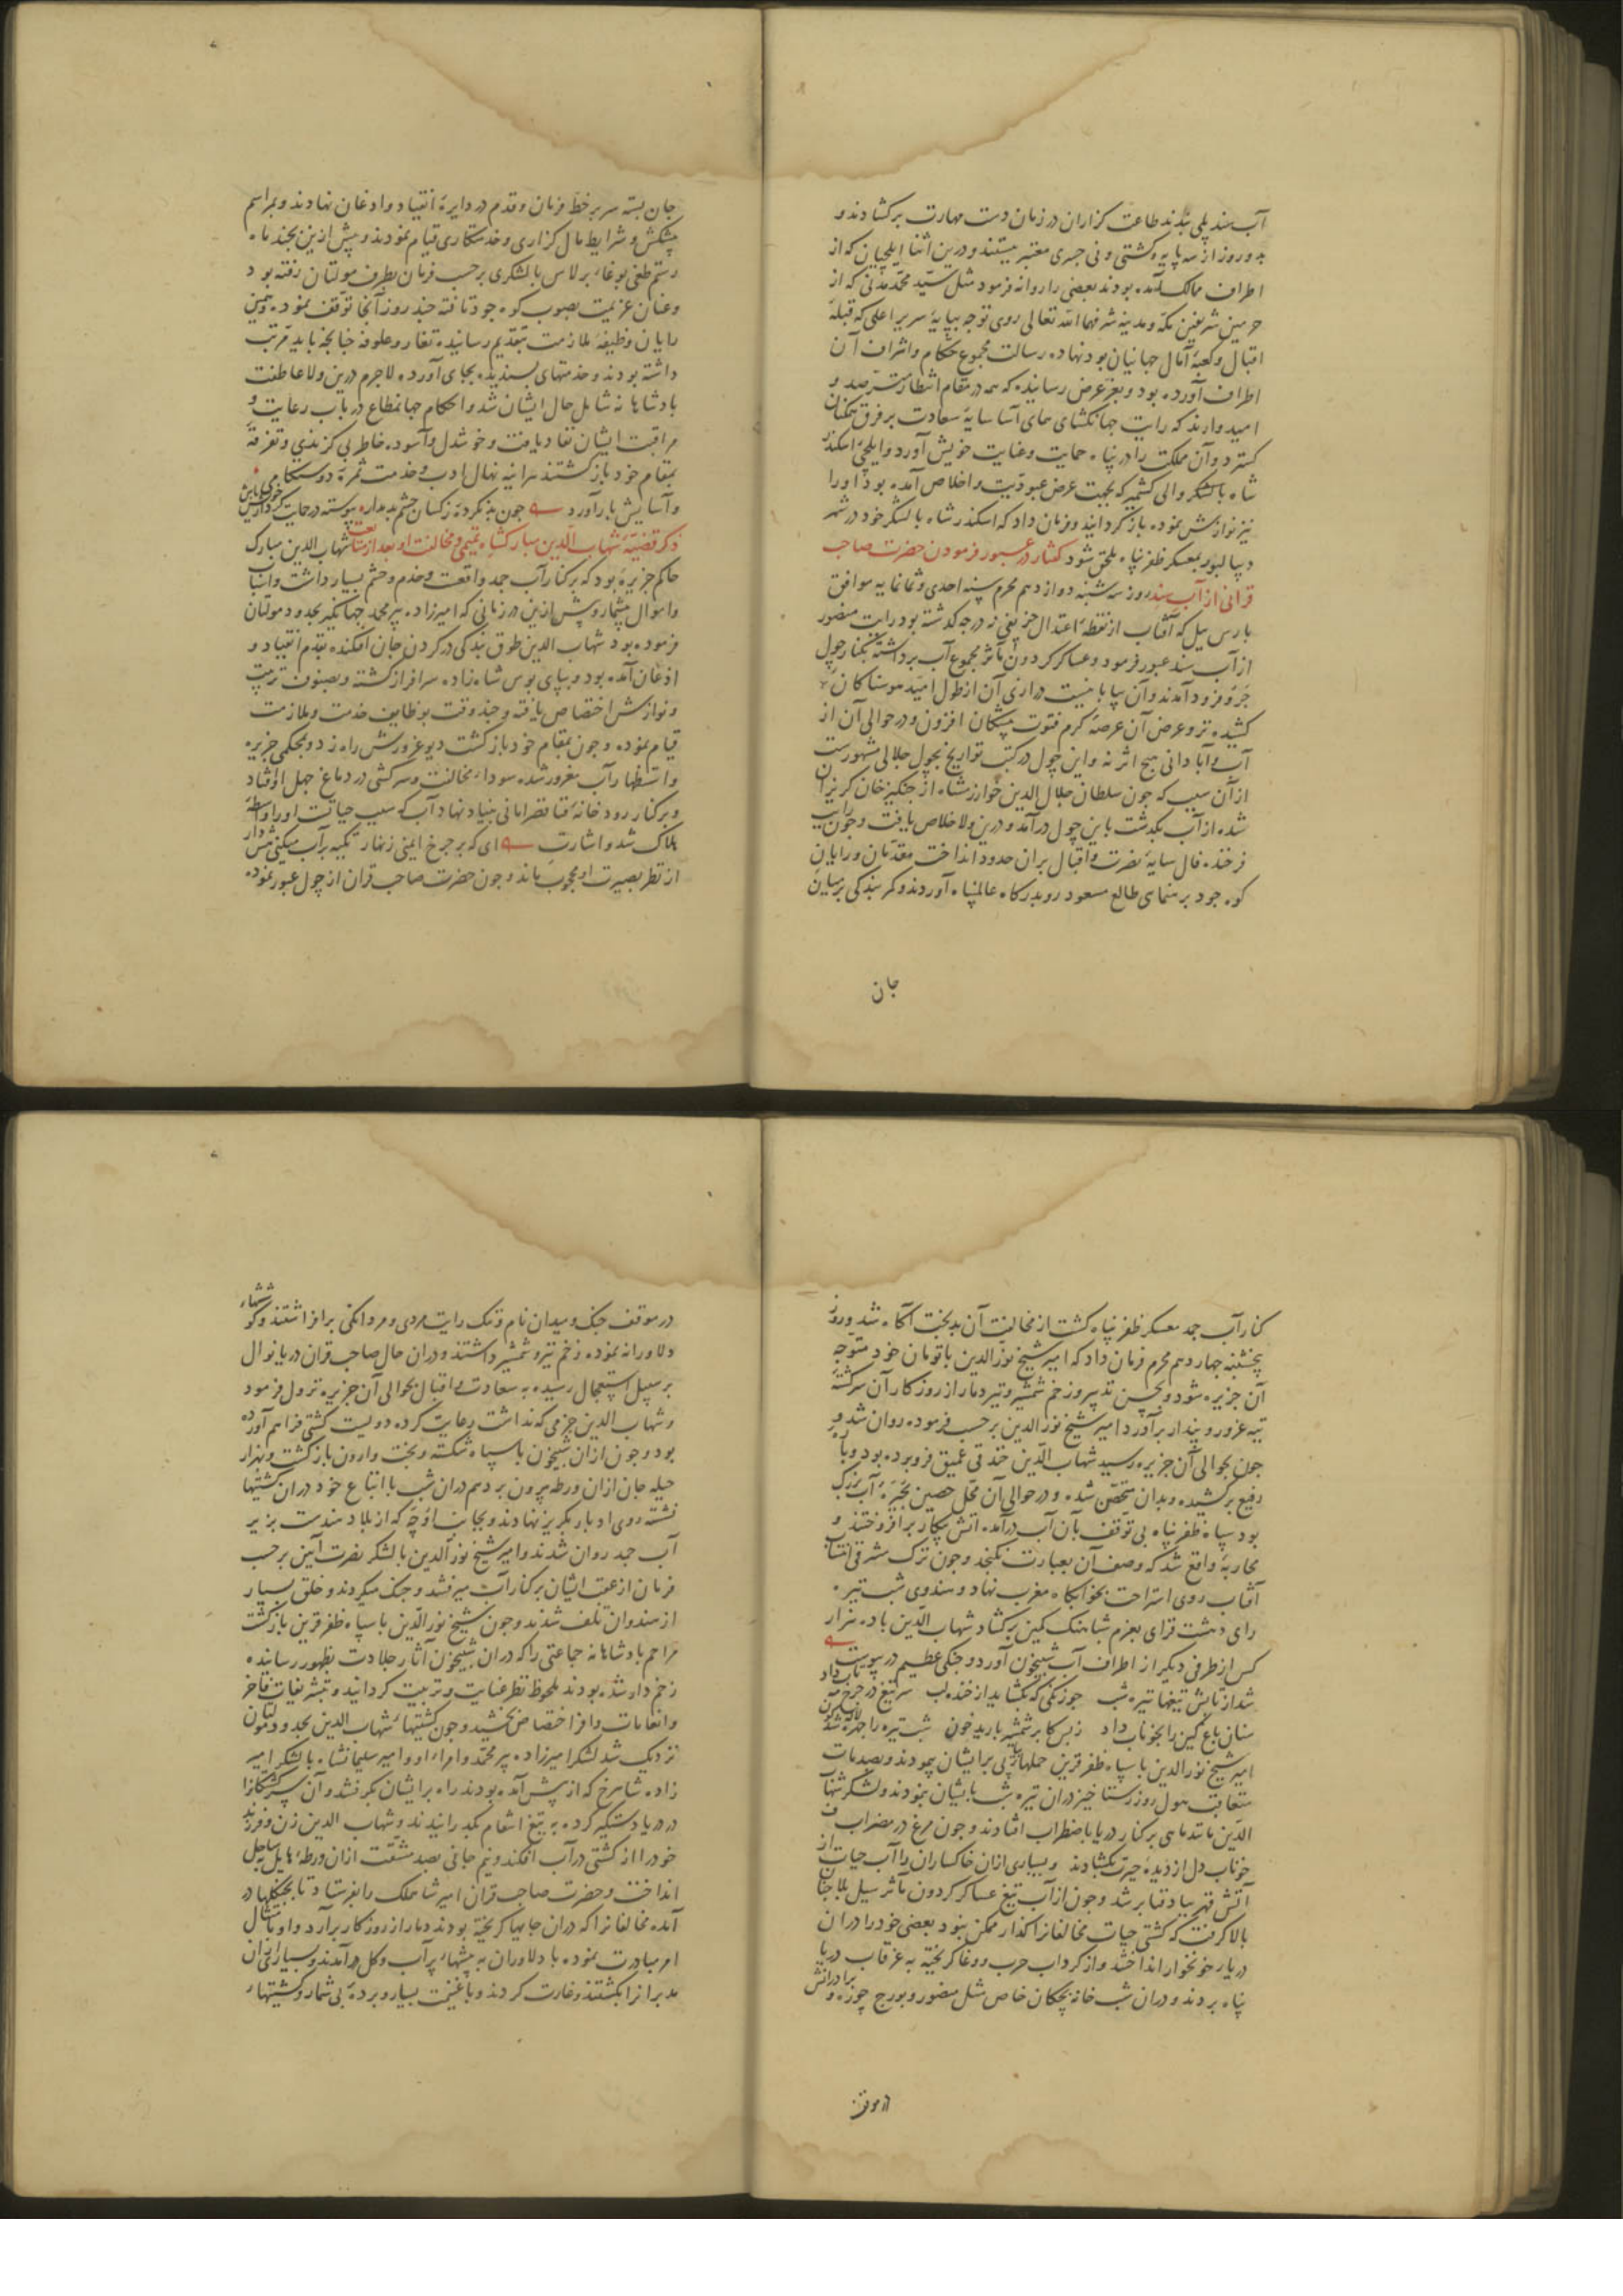 آب سند پلی بندند طاعت گزاران در زمان دست مهارت برکشادند و
بدو روز از سه پایه و کشتی و نی جسری معتبر ببستند و درین اثنا ایلچیان که از
اطراف ممالک آمده بودند بعضی را روانه فرمود مثل سید محمد مدنی که از
حرمین شریفین مکه و مدینه شرفهما الله تعالی روی توجه بپایهٔ سریر اعلی که قبلهٔ
اقبال و کعبهٔ آمال جهانیان بود نهاده رسالت مجموع حکام و اشراف آن
اطراف آورده بود و بعز عرض رسانیده که همه در مقام انتظار مترصد و
امیدوارند که رایت جهانکشای همای آسا سایهٔ سعادت بر فرق همکنان
کسترد و آن مملکت را در پناه حمایت و عنایت خویش آورد و ایلچی اسکندر
شاه با لشکر والی کشمیر که بجهت عرض عبودیت و اخلاص آمده بود او را
نیز نوازش نموده باز گردانید و فرمان داد که اسکندر شاه با لشکر خود در شهر
دیبالپور بمعسکر ظفر پناه ملحق شود گفتار در عبور فرمودن حضرت صاحب
قرانی از آب سند روز سه شنبه دوازدهم محرم سنه احدی و ثمانمایه موافق
بارس ییل که آفتاب از نقطهٔ اعتدال خریفی نه درجه گذشته بود رایت منصور
از آب سند عبور فرمود و عساکر گردون مآثر مجموع آب برداشته بکنار چول
جرو فرود آمدند و آن بیابانیست درازی آن از طول امید هوسناکان
کشیده تر و عرض آن عرصهٔ کرم فتوت پیشگان افزون و در حوالی آن از
آب و آبادانی هیچ اثر نه و این چول در کتب تواریخ بچول جلالی مشهورست
از آن سبب که چون سلطان جلال الدین خوارزمشاه از جنگیز خان گریزان
شده از آب بگذشت باین چول درآمد و درین ولا خلاص یافت و چون رایت
فرخنده فال سایهٔ نصرت و اقبال بران حدود انداخت مقدمان و رایان
کوه جود برهنمای طالع مسعود رو بدرگاه عالم پناه آوردند و کمر بندگی بر میان
جان
جان بسته سر بر خط فرمان و قدم در دایرهٔ انقیاد و اذعان نهادند و بمراسم
پیشکش و شرایط مال گزاری و خدمتکاری قیام نمودند و پیش ازین بچند ماه
رستم طغی بوغاء برلاس با لشکری برحسب فرمان بطرف مولتان رفته بود
و عنان عزیمت بصوب کوه جود تافته چند روز آنجا توقف نموده همین
رایان وظیفهٔ ملازمت بتقدیم رسانیده تغار و علوفه چنانچه باید مرتب
داشته بودند و خدمتهای پسندیده بجای آورده لاجرم درین ولا عاطفت
پادشاهانه شامل حال ایشان شد و احکام جهانمطاع در باب رعایت و
مراقبت ایشان نفاذ یافت و خوشدل و آسوده خاطر بی گزندی و تفرقهٔ
بمقام خود باز گشتند هر آینه نهال ادب و خدمت ثمرهٔ دوستکامی
و آسایش بار آورد چون بد نکردهٔ ز کسان چشم بد مدار پیوسته در حمایت کردار خویش باش
ذکر قضیهٔ شهاب الدین مبارکشاه تمیمی و مخالفت او بعد از متابعت شهاب الدین مبارک
حاکم جزیرهٔ بود که بر کنار آب جمد واقعست و خدم و حشم بسیار داشت و اسباب
و اموال بیشمار و پیش ازین در زمانی که امیرزاده پیر محمد جهانگیر بحدود مولتان
فرموده بود شهاب الدین طوق بندگی در گردن جان افکنده بقدم انقیاد و
اذعان آمده بود و بپای بوس شاه زاده سرافراز گشته و بصنوف تربیت
و نوازش اختصاص یافته و چند وقت بوظایف خدمت و ملازمت
قیام نموده و چون بمقام خود باز گشت دیو غرورش راه زد و بمحکمی جزیره
و استظهار آب مغرور شده سوداء مخالفت و سرکشی در دماغ جهل او افتاد
و بر کنار رودخانه بنیاد نهاد آب که سبب حیاتست او را واسطهٔ
هلاک شد و اشارت ای که بر چرخ ایمنی زنهار تکیه بر آب میکنی هش دار
از نظر بصیرت او محجوب ماند و چون حضرت صاحب قران از چول عبور نموده
کنار آب جمد معسکر ظفر پناه گشت از مخالفت آن بدبخت آگاه شد و روز
پنجشنبه چهاردهم محرم فرمان داد که امیر شیخ نورالدین با تومان خود متوجه
آن جزیره شود و بحسن تدبیر و زخم شمشیر و تیر دمار از روزگار آن سرگشتهٔ
تیه غرور و پندار برآورد امیر شیخ نورالدین برحسب فرموده روان شد و
چون بحوالی آن جزیره رسید شهاب الدین خندقی عمیق فرو برده بود و بارهٔ
رفیع برکشیده و بدان متحصن شده و در حوالی آن محل حصین بحیرهٔ آب بزرگ
بود سپاه ظفر پناه بی توقف بآن آب درآمده آتش پیکار برافروختند و
محاربهٔ واقع شد که وصف آن بعبارت نگنجد و چون ترک مشرقی انتساب
آفتاب روی استراحت بخوابگاه مغرب نهاد و هندوی شب تیره
رای دهشت فزای بعزم شباهنگ کمین برکشاد شهاب الدین با ده هزار
کس از طرفی دیگر از اطراف آب شبیخون آورد و جنگی عظیم در پیوست
شد از تابش تیغها تیره شب چو زنگی که بگشاید از خنده لب سر تیغ در چرخ مه تاب داد
سنان باغ کین را بخوناب داد ز بس کابر شمشیر بارید خون شب تیره را چهره شد لاله گون
امیر شیخ نورالدین با سپاه ظفر قرین حملهاء پیاپی بر ایشان پیمودند و بصدمات
متعاقب هول روز رستاخیز دران تیره شب بایشان نمودند و لشکر شهاب
الدین مانند ماهی بر کنار دریا باضطراب افتادند و چون مرغ در مضراب
خوناب دل از دیدهٔ حیرت بگشادند و بسیاری ازان خاکساران را آب حیات از
آتش قهر بباد فنا بر شد و چون از آب تیغ عساکر گردون مآثر سیل بلا چنان
بالا گرفت که کشتی حیات مخالفانرا گذار ممکن نبود بعضی خود را دران
دریاء خونخوار انداختند و از گرداب حرب و وغا گریخته به غرقاب دریا
پناه بردند و دران شب خانه بچگان خاص مثل منصور و بورج چوره و برادرانش
در موقف
در موقف جنگ و میدان نام و ننگ رایت مردی و مردانگی برافراشتند و کوششهاء
دلاورانه نموده زخم تیر و شمشیر داشتند و دران حال صاحب قران دریا نوال
بر سبیل استعجال رسیده به سعادت و اقبال بحوالی آن جزیره نزول فرمود
و شهاب الدین حزمی که نداشت رعایت کرده دویست کشتی فراهم آورده
بود و چون ازان شبیخون با سپاه شکسته و بخت وارون باز گشت و بهزار
حیله جان ازان ورطه بیرون برد هم دران شب با اتباع خود دران کشتیها
نشسته روی ادبار بگریز نهادند و بجانب اوچه که از بلاد هندست بزیر
آب جمد روان شدند و امیر شیخ نورالدین با لشکر نصرت آیین برحسب
فرمان از عقب ایشان بر کنار آب میرفتند و جنگ میکردند و خلق بسیار
از هندوان تلف شدند و چون شیخ نورالدین با سپاه ظفر قرین باز گشت
مراحم پادشاهانه جماعتی را که دران شبیخون آثار جلادت بظهور رسانیده
زخم دار شده بودند ملحوظ نظر عنایت و تربیت گردانید و بتشریفات فاخر
و انعامات وافر اختصاص بخشید و چون کشتیهاء شهاب الدین بحدود مولتان
نزدیک شد لشکر امیرزاده پیر محمد و امراء او و امیر سلیمانشاه با لشکر امیر
زاده شاهرخ که از پیش آمده بودند راه بر ایشان بگرفتند و آن سرگشتگانرا
در دریا دستگیر کرده به تیغ انتقام بگذرانیدند و شهاب الدین زن و فرزند
خود را از کشتی در آب افکند و نیم جانی بصد مشقت ازان ورطهٔ هایل بساحل
انداخت و حضرت صاحب قران امیر شاه ملک را بفرستاد تا بجنگلها در
آمده مخالفانرا که دران جایها گریخته بودند دمار از روزگار برآرد و او بامتثال
امر مبادرت نموده با دلاوران به بیشهاء پر آب و گل درآمدند و بسیاری ازان
مدبرانرا بکشتند و غارت کردند و با غنیمت بسیار و بردهٔ بی شمار و کشتیهاء